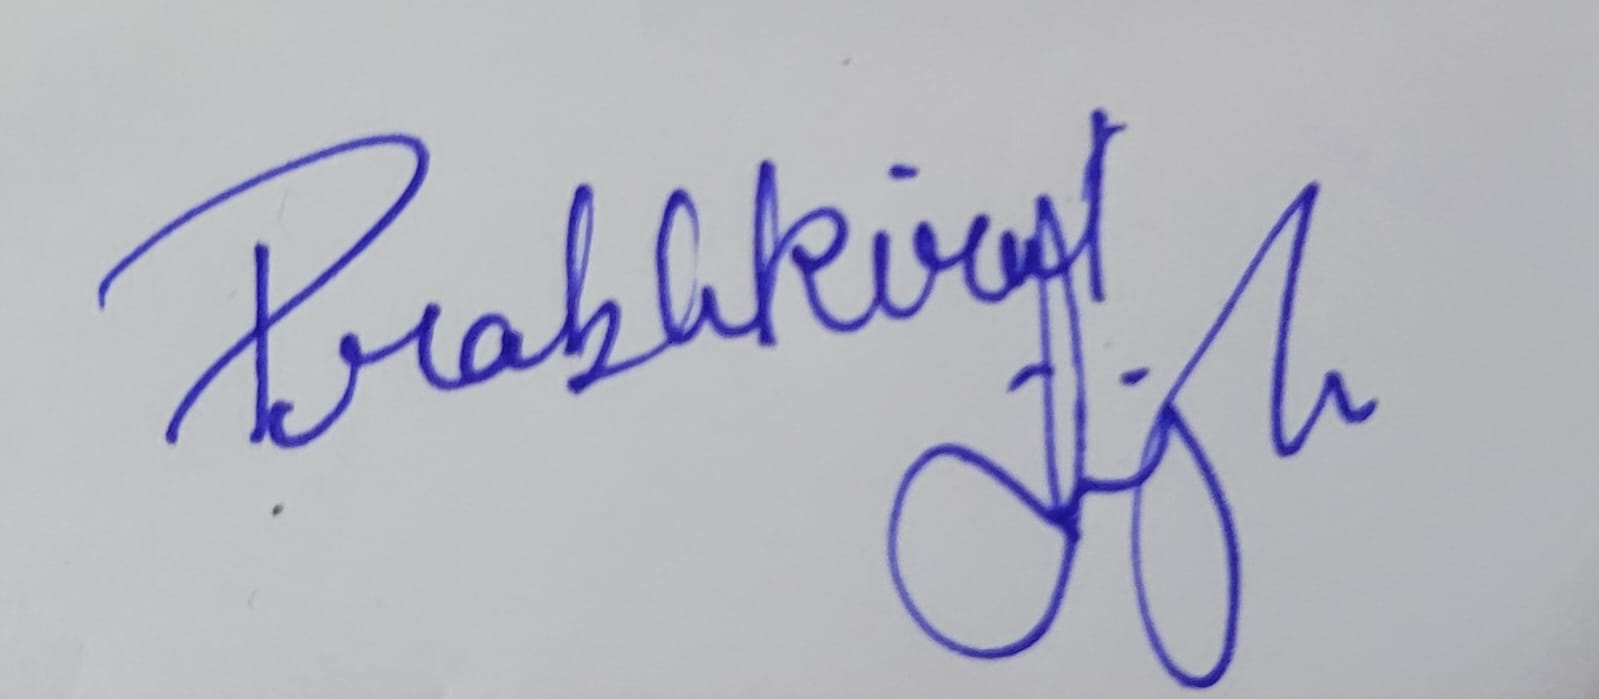 Prabhkirat
Singh